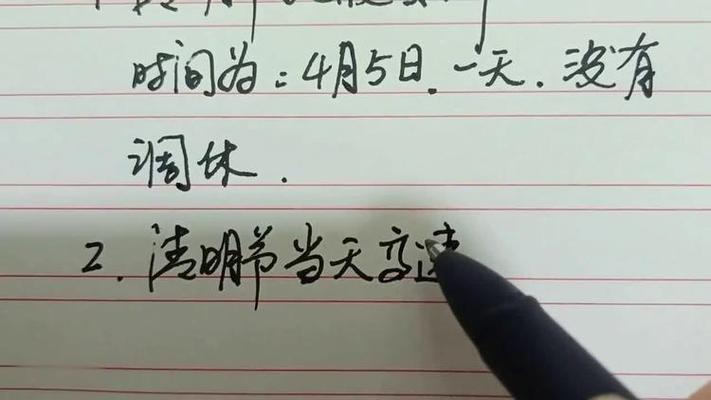 时间为:4月5日.一天.没有
调休.
2.清明节当天高速